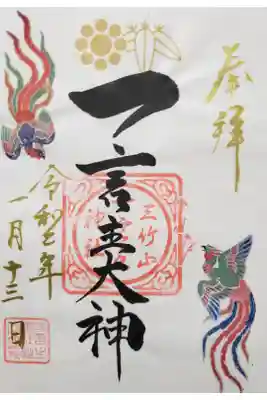 奉拝
三竹山
一言主大神
令和七年
一月十三日